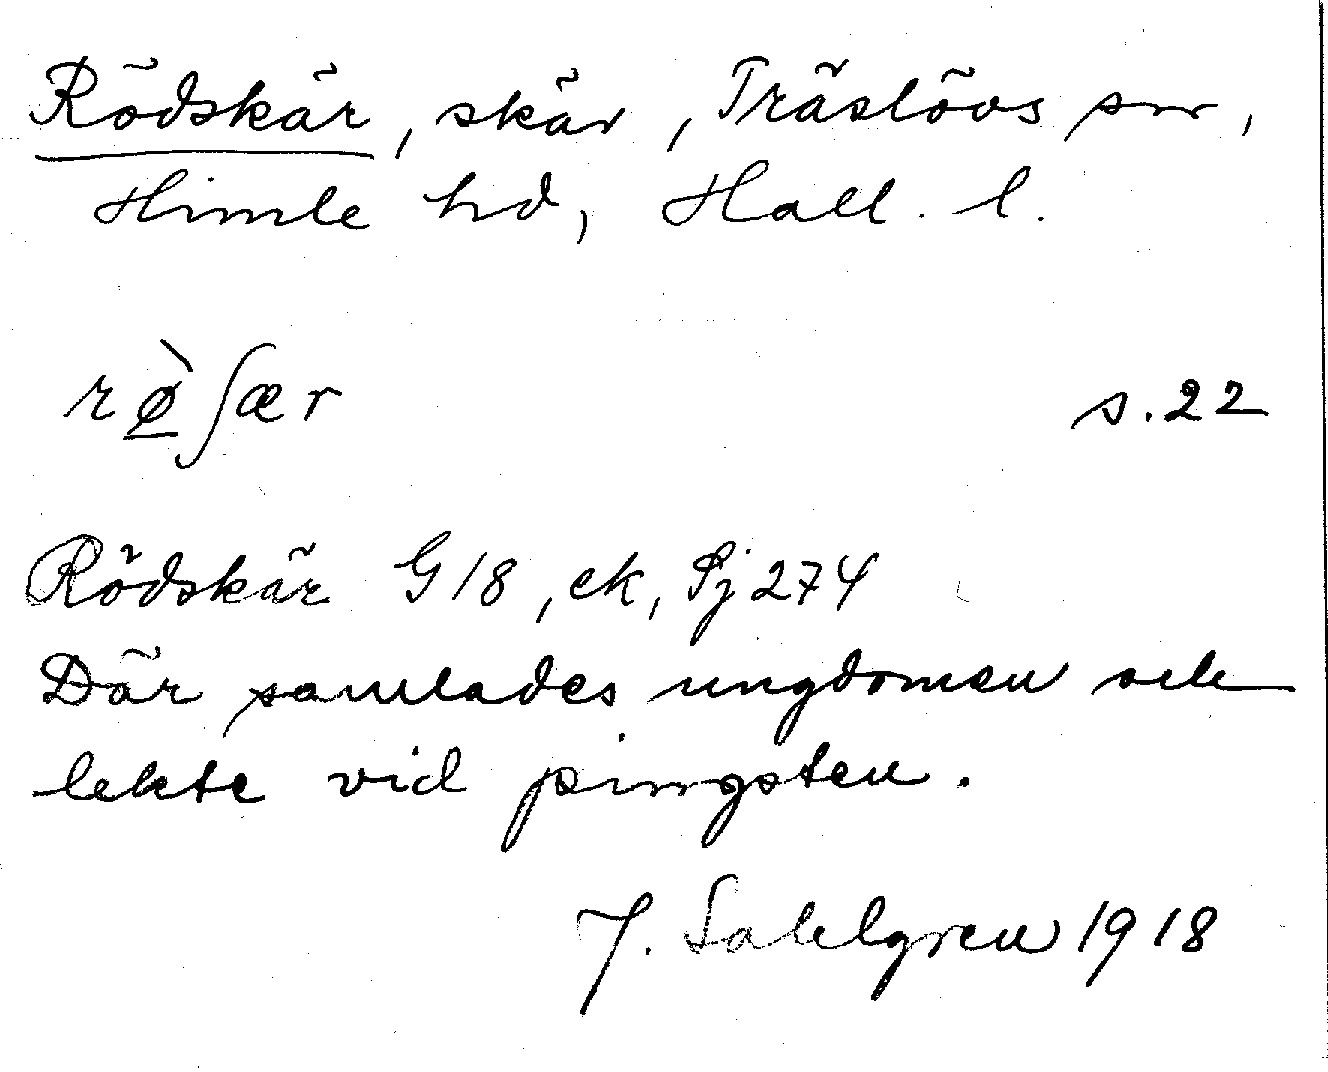 Rödskär, skär, Träslövs sn,
Himle hd, Hall. l.
rø̠̀ʃær s. 22
Rödskär G18, ek, Sj 274
Där samlades ungdomen och
lekte vid pingsten.
J. Sahlgren 1918